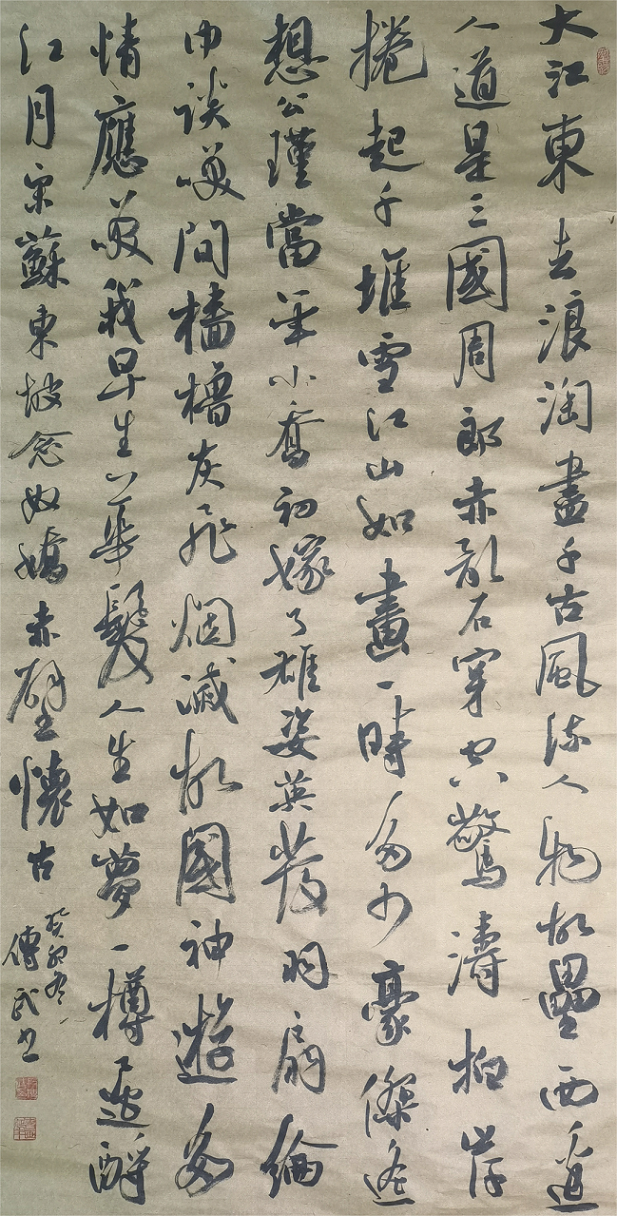 大江東去浪淘盡千古風流人物故壘西邊
人道是三國周郎赤亂石穿空驚濤拍岸
捲起千堆雪江山如畫一時多少豪傑遙
想公瑾當年小喬初嫁了雄姿英發羽扇綸
巾談笑間檣櫓灰飛烟滅故國神遊多
情應笑我早生華髮人生如夢一樽還酹
江月宋蘇東坡念奴嬌赤壁懷古
癸卯冬
书